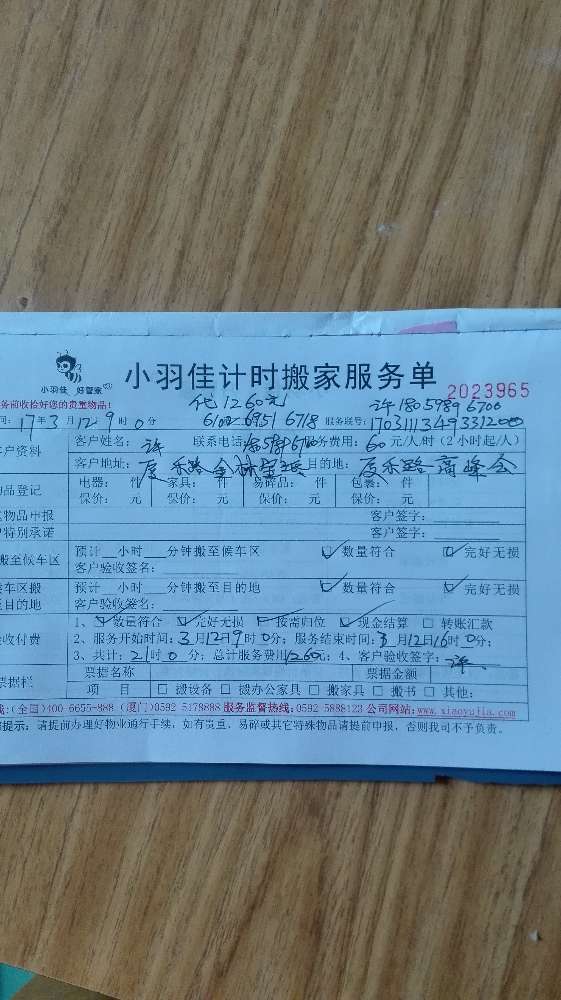 小羽佳 好管家
小羽佳计时搬家服务单
2023965
务前收检好您的贵重物品!
代1260元
许18059896700
间: 17年3月12 9时0分
6102 6951 6718 服务联号: 1703111349331200
户资料 客户姓名: 许 联系电话: 费用: 60元/人/时(2小时起/人)
客户地址: 厦禾路 目的地: 厦禾路
品登记 电器: 件 家具: 件 易碎品: 件 包裹: 件
保价: 元 保价: 元 保价: 元 保价: 元
物品申报 客户签字:
特别承诺 客户签字:
搬至候车区 预计 小时 分钟搬至候车区 ☑数量符合 ☑完好无损
客户验收签名:
车区搬 预计 小时 分钟搬至目的地 ☑数量符合 ☑完好无损
目的地 客户验收签名:
1、☑数量符合 ☑完好无损 ☑按需归位 ☑现金结算 □转账汇款
收付费 2、服务开始时间: 3月12日9时0分; 服务结束时间: 3月12日16时0分;
3、共计: 21时0分; 总计服务费用1260元; 4、客户验收签字: 许
票据栏 票据名称 票据金额
项 目 □搬设备 □搬办公家具 □搬家具 □搬书 □其他:
线:(全国)400-6655-888 (厦门)0592 5178888 服务监督热线:0592 5888123 公司网站:www.xiaoyujia.com
提示: 请提前办理好物业通行手续,如有贵重、易碎或其它特殊物品请提前申报,否则我司不予负责。